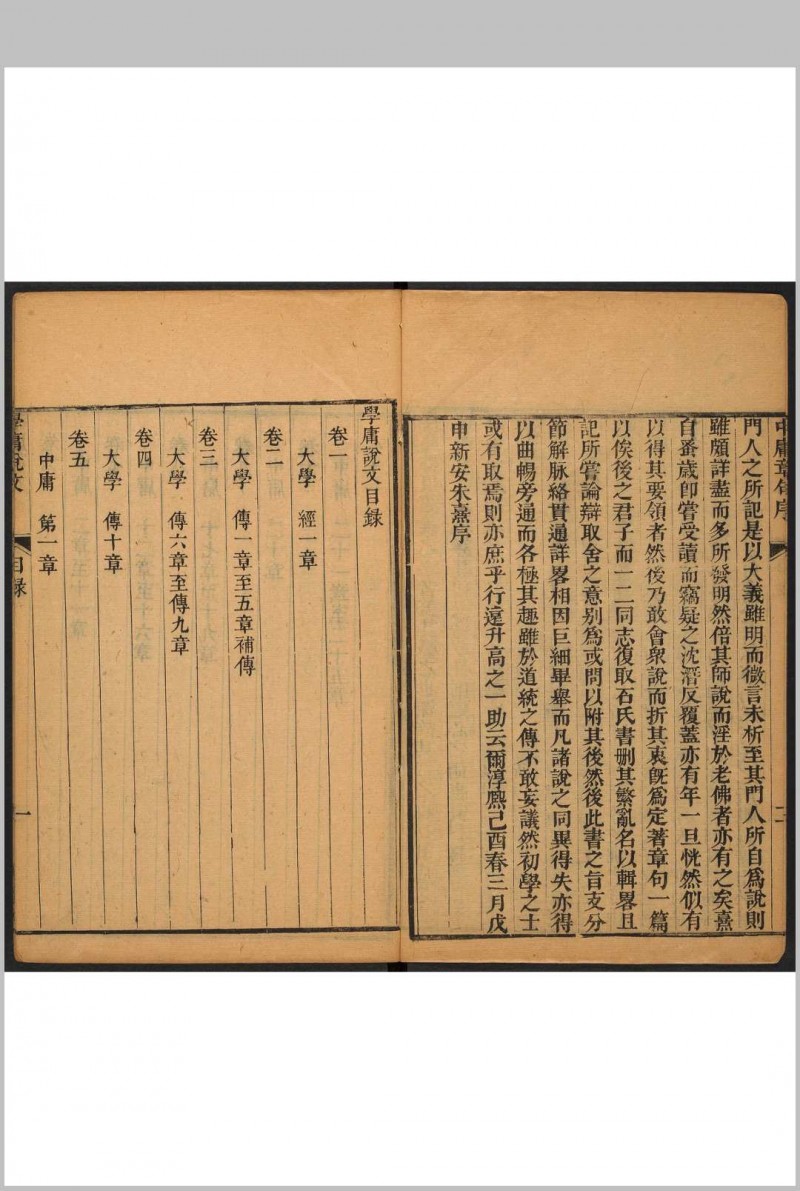 中庸章句序
二
門人之所記是以大義雖明而微言未析至其門人所自爲說則
雖頗詳盡而多所發明然倍其師說而淫於老佛者亦有之矣熹
自蚤歲卽嘗受讀而竊疑之沈潛反覆蓋亦有年一旦恍然似有
以得其要領者然後乃敢會衆說而折其衷旣爲定著章句一篇
以俟後之君子而一二同志復取石氏書删其繁亂名以輯畧且
記所嘗論辯取舍之意别爲或問以附其後然後此書之旨支分
節解脉絡貫通詳畧相因巨細畢舉而凡諸說之同異得失亦得
以曲暢旁通而各極其趣雖於道統之傳不敢妄議然初學之士
或有取焉則亦庶乎行遠升高之一助云爾淳熈己酉春三月戊
申新安朱熹序
學庸說文目録
卷一
大學 經一章
卷二
大學 傳一章至五章補傳
卷三
大學 傳六章至傳九章
卷四
大學 傳十章
卷五
中庸 第一章
學庸說文
目録
一